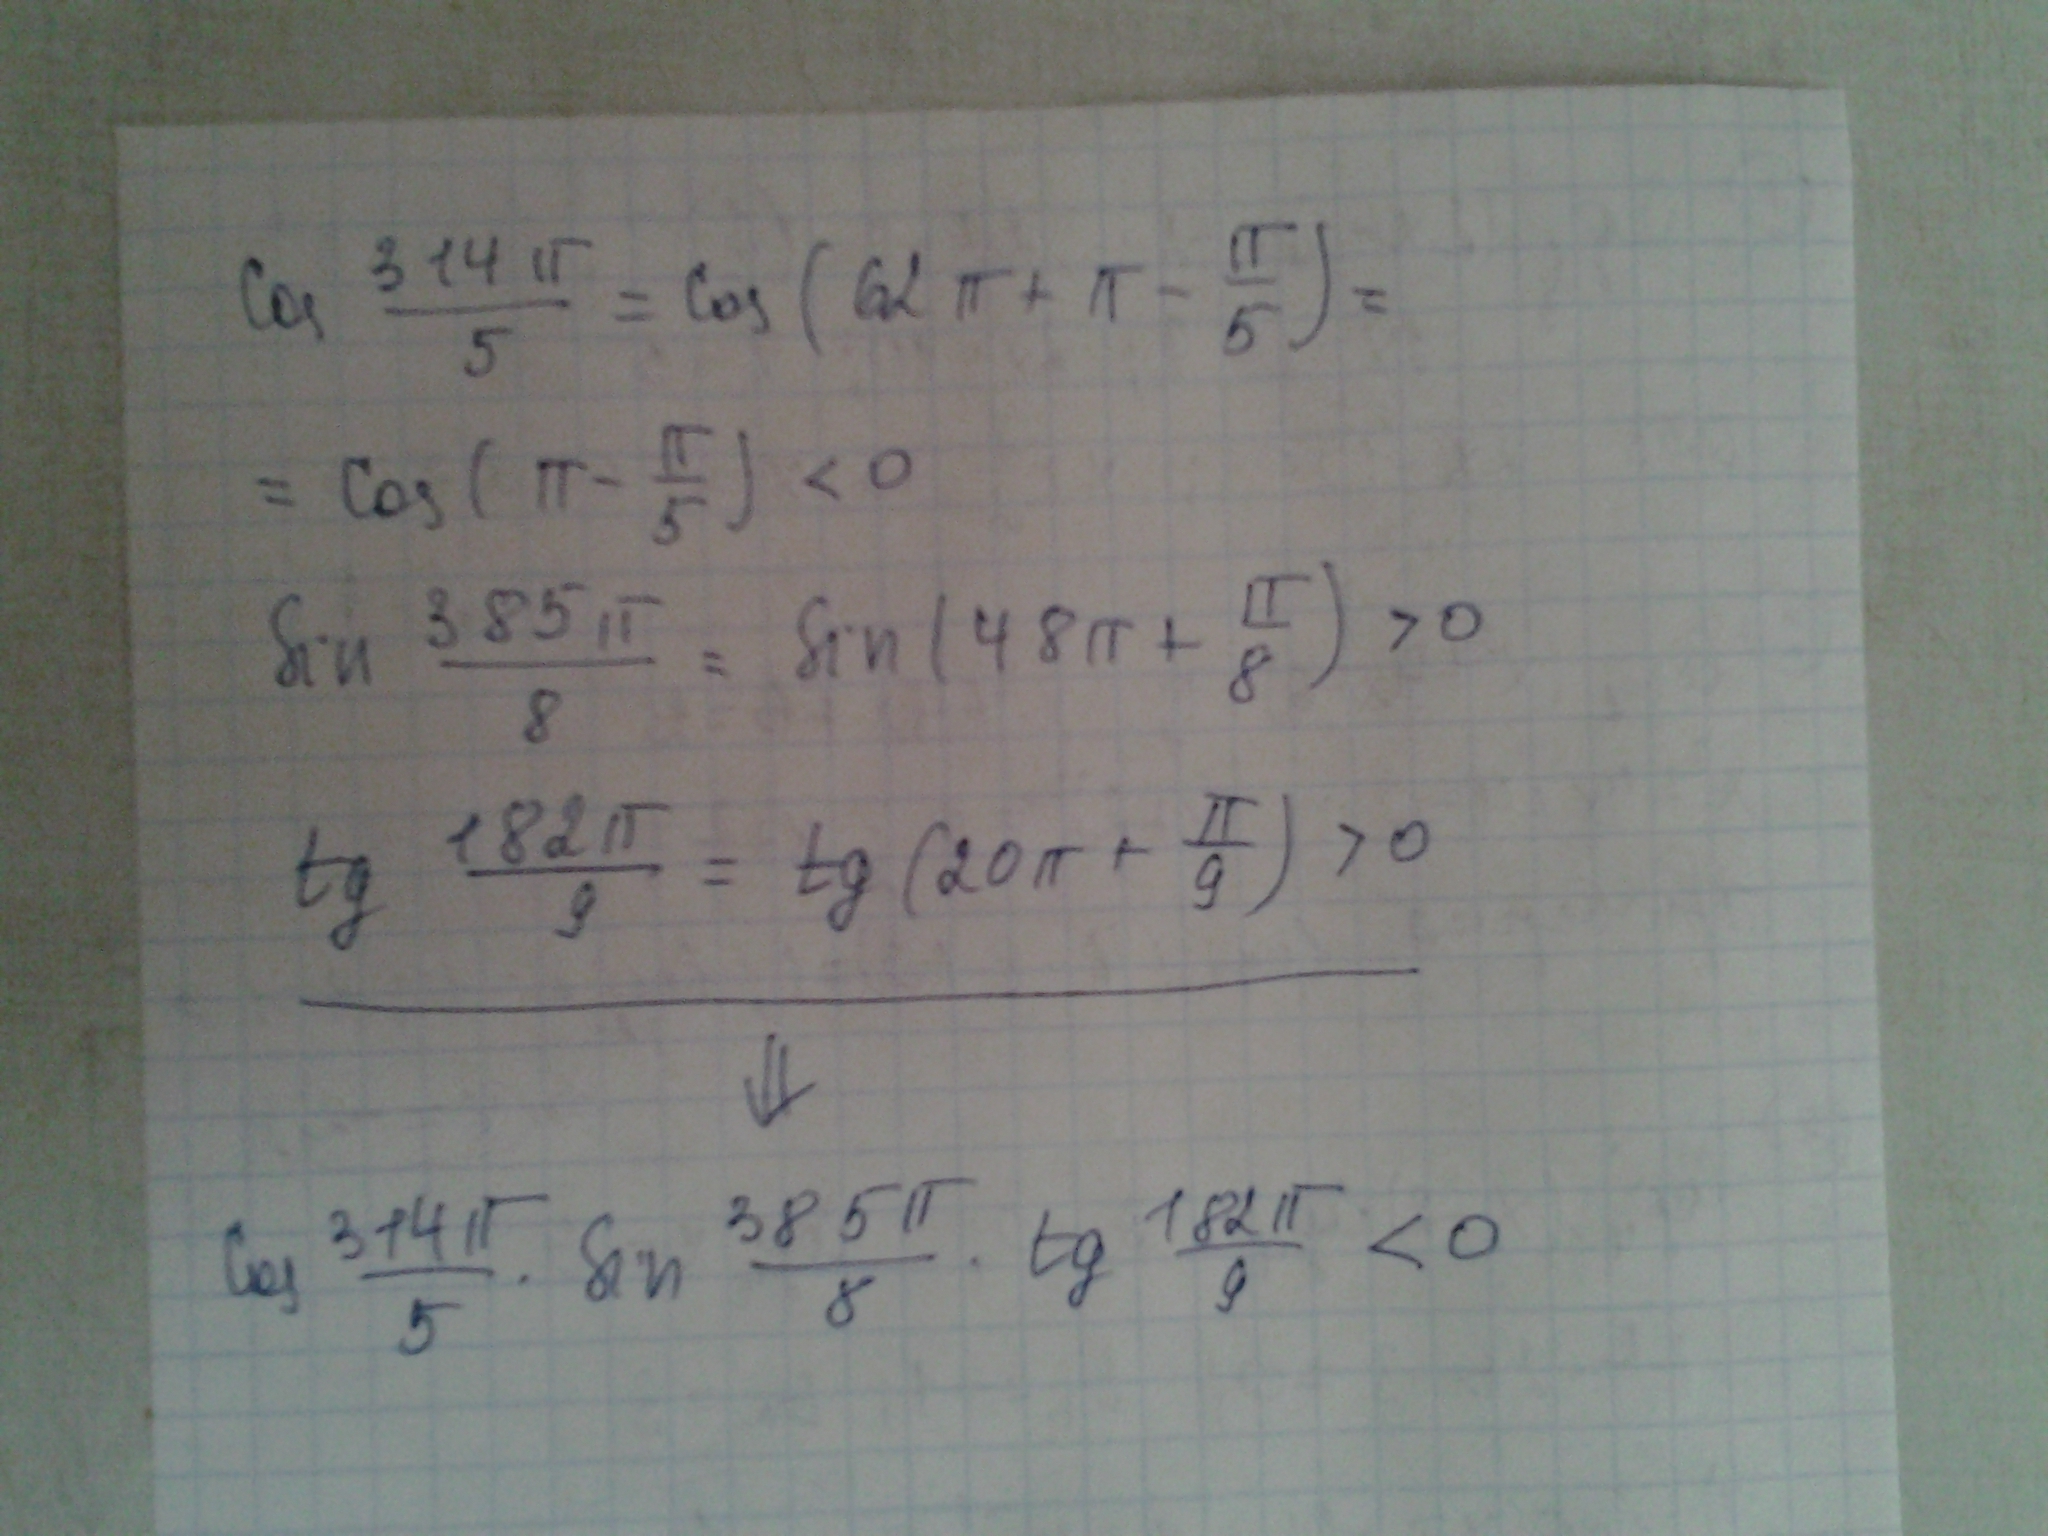 cos 314π/5 = cos(62π + π - π/5) =
= cos(π - π/5) < 0
sin 385π/8 = sin(48π + π/8) > 0
tg 182π/9 = tg(20π + π/9) > 0
⇓
cos 314π/5 · sin 385π/8 · tg 182π/9 < 0